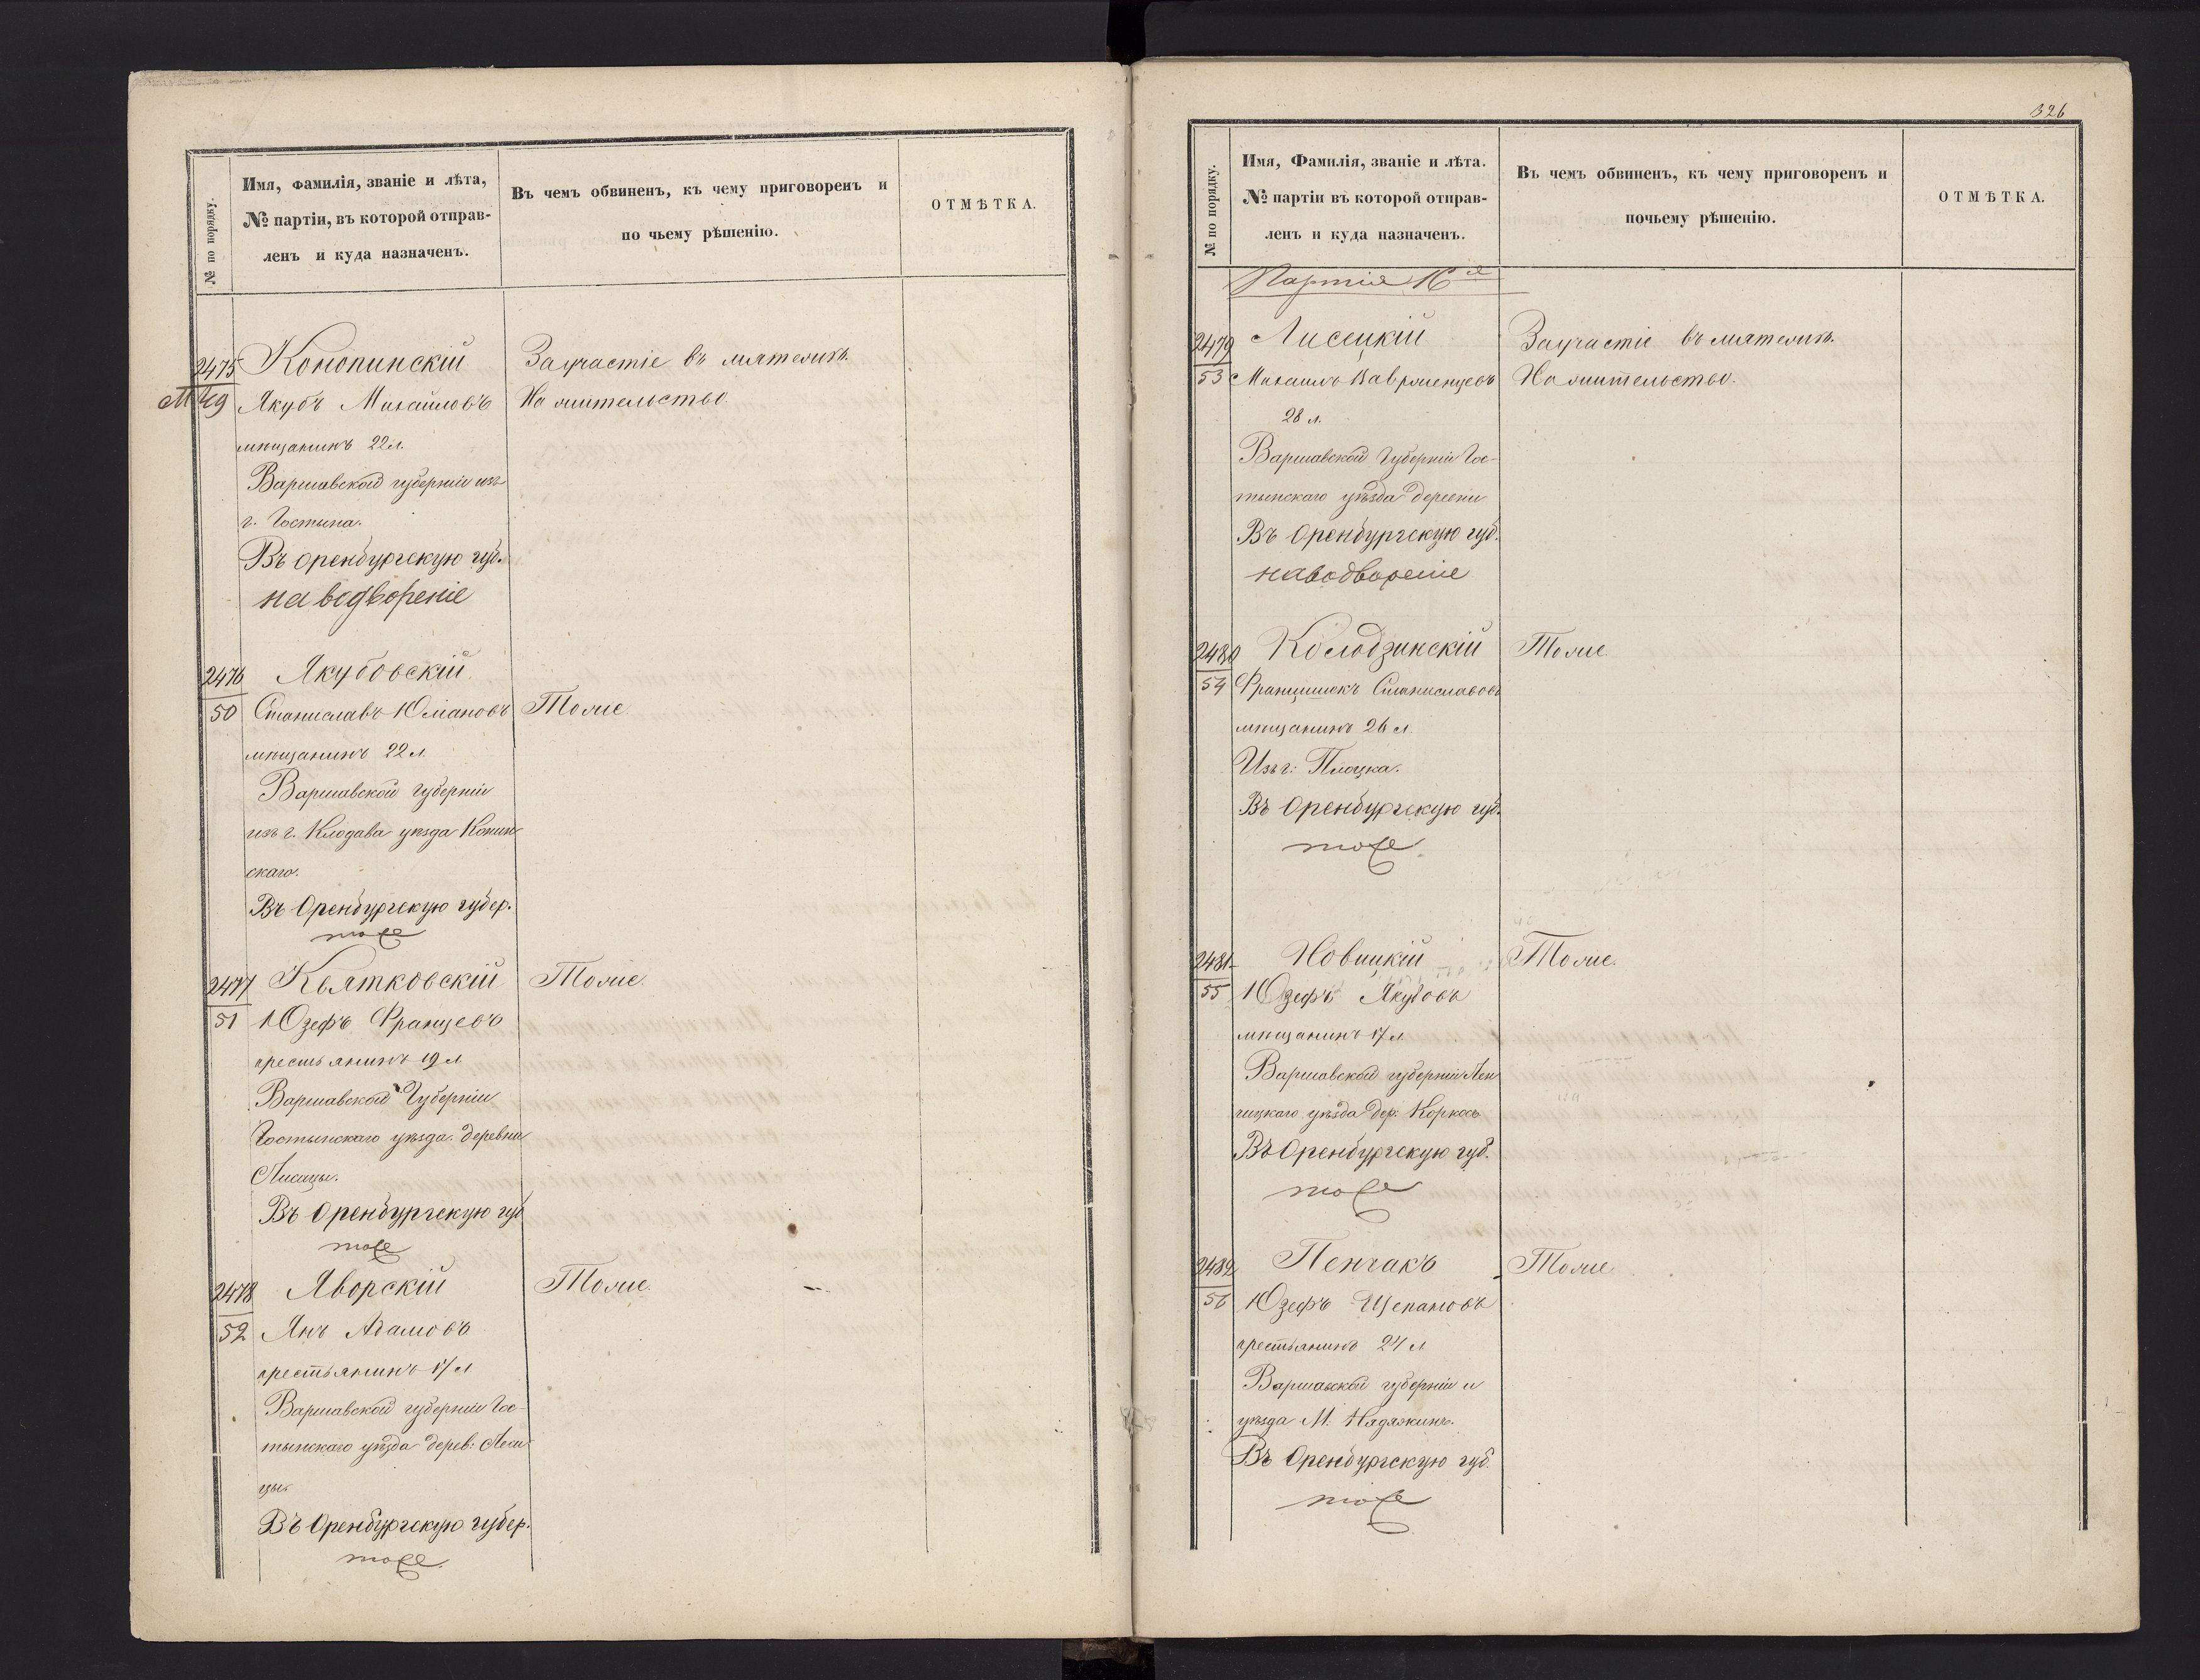 № по порядку.
Имя, фамилія, званіе и лѣта,
№ партіи, въ которой отправ-
ленъ и куда назначенъ.
Въ чемъ обвиненъ, къ чему приговоренъ и
по чьему рѣшенію.
ОТМѢТКА.
2475
49
Конопинскій
Якубъ Михайловъ
мѣщанинъ 22 л.
Варшавской губерніи изъ
г. Гостына.
Въ Оренбургскую губ.
на водвореніе
За участіе въ мятежѣ.
На жительство.
2476
50
Якубовскій
Станиславъ Юліановъ
мѣщанинъ 22 л.
Варшавской губерніи
изъ г. Клодава уѣзда Конин
скаго.
Въ Оренбургскую губер.
тоже
Тоже.
2477
51
Квятковскій
Юзефъ Францевъ
крестьянинъ 19 л
Варшавской Губерніи
Гостынскаго уѣзда деревни
Лисицы.
Въ Оренбургскую губ
тоже
Тоже.
2478
52
Яворскій
Янъ Адамовъ
крестьянинъ 17 л
Варшавской губерніи Гос-
тынскаго уѣзда дерев:
цы.
Въ Оренбургскую губер.
тоже.
Тоже.
326
№ по порядку.
Имя, Фамилія, званіе и лѣта.
№ партіи въ которой отправ-
ленъ и куда назначенъ.
Въ чемъ обвиненъ, къ чему приговоренъ и
почьему рѣшенію.
ОТМѢТКА.
Партія 16я
2479
53
Лисецкій
Михаилъ Вавржинцевъ
28 л.
Варшавской Губерніи Гос-
тынскаго уѣзда деревни
Въ Оренбургскую губ.
на водвореніе
За участіе въ мятежѣ.
На жительство.
2480
54
Колодзинскій
Францишекъ Станиславовъ
мѣщанинъ 26 л.
Изъ г: Плоцка.
Въ Оренбургскую губ.
тоже
Тоже.
2481
55
Новицкій
Юзефъ Якубовъ
мѣщанинъ 17 л.
Варшавской губерніи Лен
чицкаго уѣзда дер:
Въ Оренбургскую губ.
тоже
Тоже.
2482
56
Пенчакъ
Юзефъ Щепановъ
крестьянинъ 24 л
Варшавской губерніи и
уѣзда М: Надяжинъ.
Въ Оренбургскую губ.
тоже
Тоже